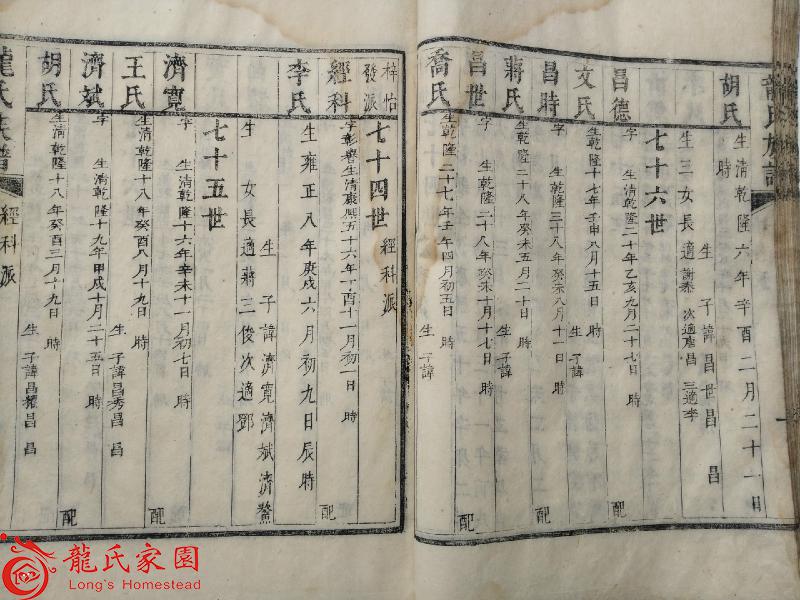 龍氏族譜
胡氏 生清乾隆六年辛酉二月二十一日
時 生子諱昌世昌 昌
生三女長適謝泰 次適唐昌 三適李
七十六世
昌德 字 生清乾隆二十年乙亥九月二十七日 時 配
文氏 生乾隆十七年壬申八月十五日 時 生子諱
昌時 字 生乾隆三十八年癸未八月十一日 時 配
蔣氏 生乾隆二十八年癸未五月二十日 時 生子諱
昌世 字 生乾隆二十八年癸未十月十七日 時 配
喬氏 生乾隆二十七年壬午四月初五日 時 生子諱
梓怙發派 七十四世 經科派
經科 字彰 生清康熙五十六年丁酉十一月初一日 時 配
李氏 生雍正八年庚戌六月初九日辰時
生子諱濟寬濟斌濟鰲
生 女長適蔣三俊次適鄧
七十五世
濟寬 字 生清乾隆十六年辛未十一月初七日 時 配
王氏 生清乾隆十八年癸酉八月十九日 時 生子諱昌秀昌 昌
濟斌 字 生清乾隆十九年甲戌十月二十五日 時 配
胡氏 生清乾隆十八年癸酉三月十九日 時 生子諱昌 昌 昌
龍氏族譜 經科派
龍氏家園
Long's Homestead